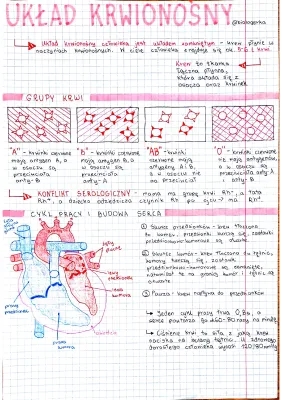 UKŁAD KRWIONOŚNY
@biologerka
Układ krwionośny człowieka jest układem zamkniętym - krew płynie w
naczyniach krwionośnych. W ciele człowieka znajduje się ok. 5-6 l krwi.
Krew to tkanka
łączna płynna,
która składa się z
osocza oraz krwinek
GRUPY KRWI
"A" - krwinki czerwone
mają antygen A, a
w osoczu są
przeciwciała
anty-B
"B" - krwinki czerwone
mają antygen B, a
w osoczu są
przeciwciała
anty-A
"AB" - krwinki
czerwone mają
antygeny A i B,
a w osoczu nie
ma przeciwciał
"0" - krwinki czerwone
nie mają antygenów,
a w osoczu są
przeciwciała anty-A i
anty-B
KONFLIKT SEROLOGICZNY - mama ma grupę krwi Rh-, a tata
Rh+, a dziecko dziedziczy czynnik Rh po ojcu → ma Rh+.
CYKL PRACY I BUDOWA SERCA
① Skurcz przedsionków - krew tłoczona
do komór, przedsionki kurczą się, zastawki
przedsionkowo-komorowe są otwarte.
② Skurcz komór - krew tłoczona do tętnic,
komory kurczą się, zastawki
przedsionkowo-komorowe są zamknięte,
natomiast te na granicy komór i tętnic są
otwarte
③ Pauza - krew napływa do przedsionków
→ Jeden cykl pracy trwa 0,8s, a
serce powtarza go ok. 60-80 razy na minutę
→ Ciśnienie krwi to siła z jaką krew
naciska na ściany tętnic. U zdrowego
dorosłego człowieka wynosi 120/80 mmHg
żyła
płucna
lewy
przedsionek
lewa
komora
prawy
przedsionek
prawa
komora